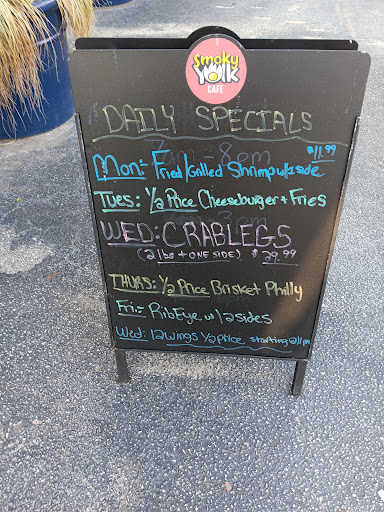 Smoky
YOLK
CAFE
DAILY SPECIALS
$11.99
Mon:- Fried/Grilled Shrimp w/1side
Tues: 1/2 Price Cheeseburger + Fries
WED: CRABLEGS
(2 lbs + ONE SIDE) $29.99
THURS: 1/2 Price Brisket Philly
Fri:- RibEye w/2sides
Wed: 12wings 1/2 price starting @